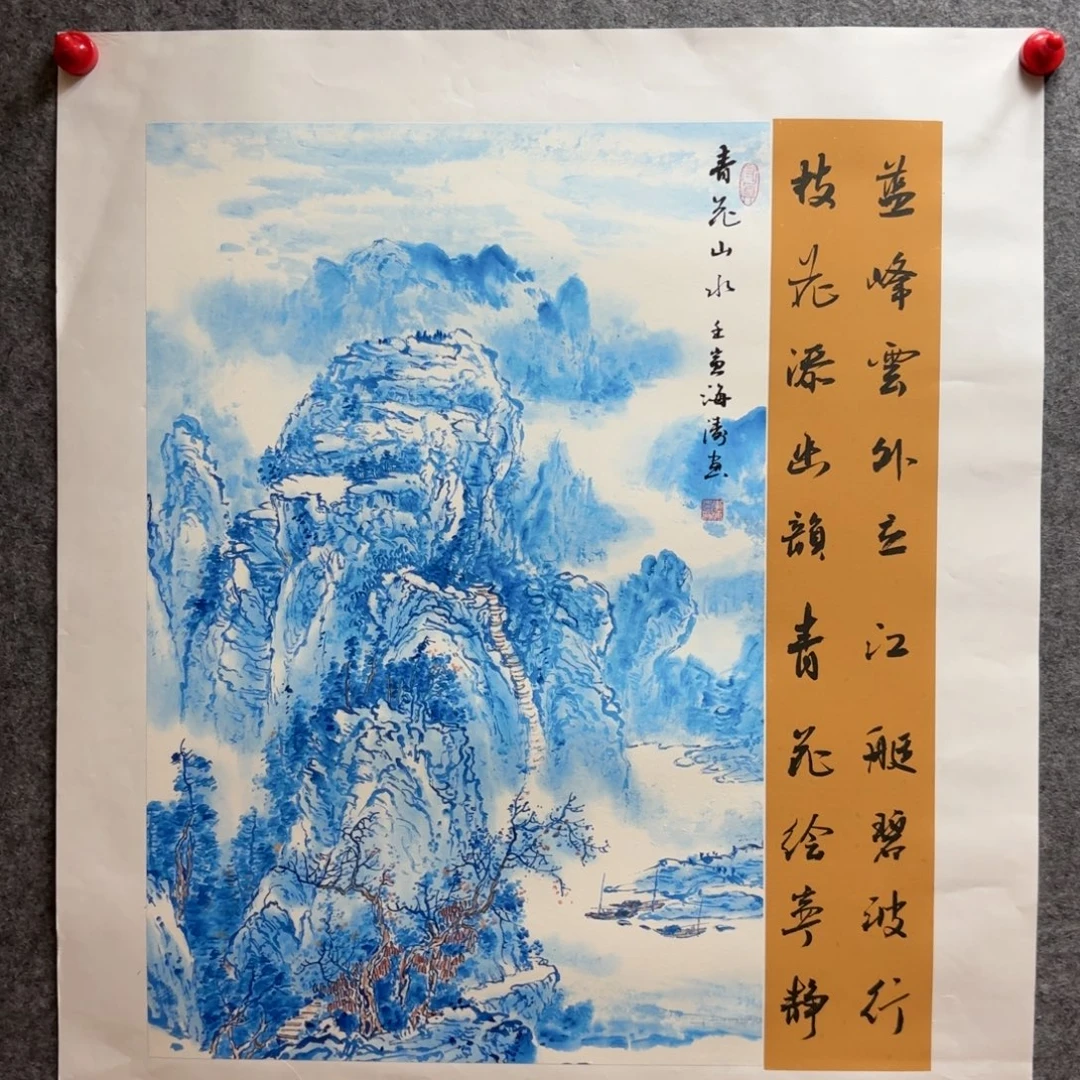 蓝峰雲外立江艇碧波行
枝花添出韻青花绘寧静
青花山水
壬寅海涛画